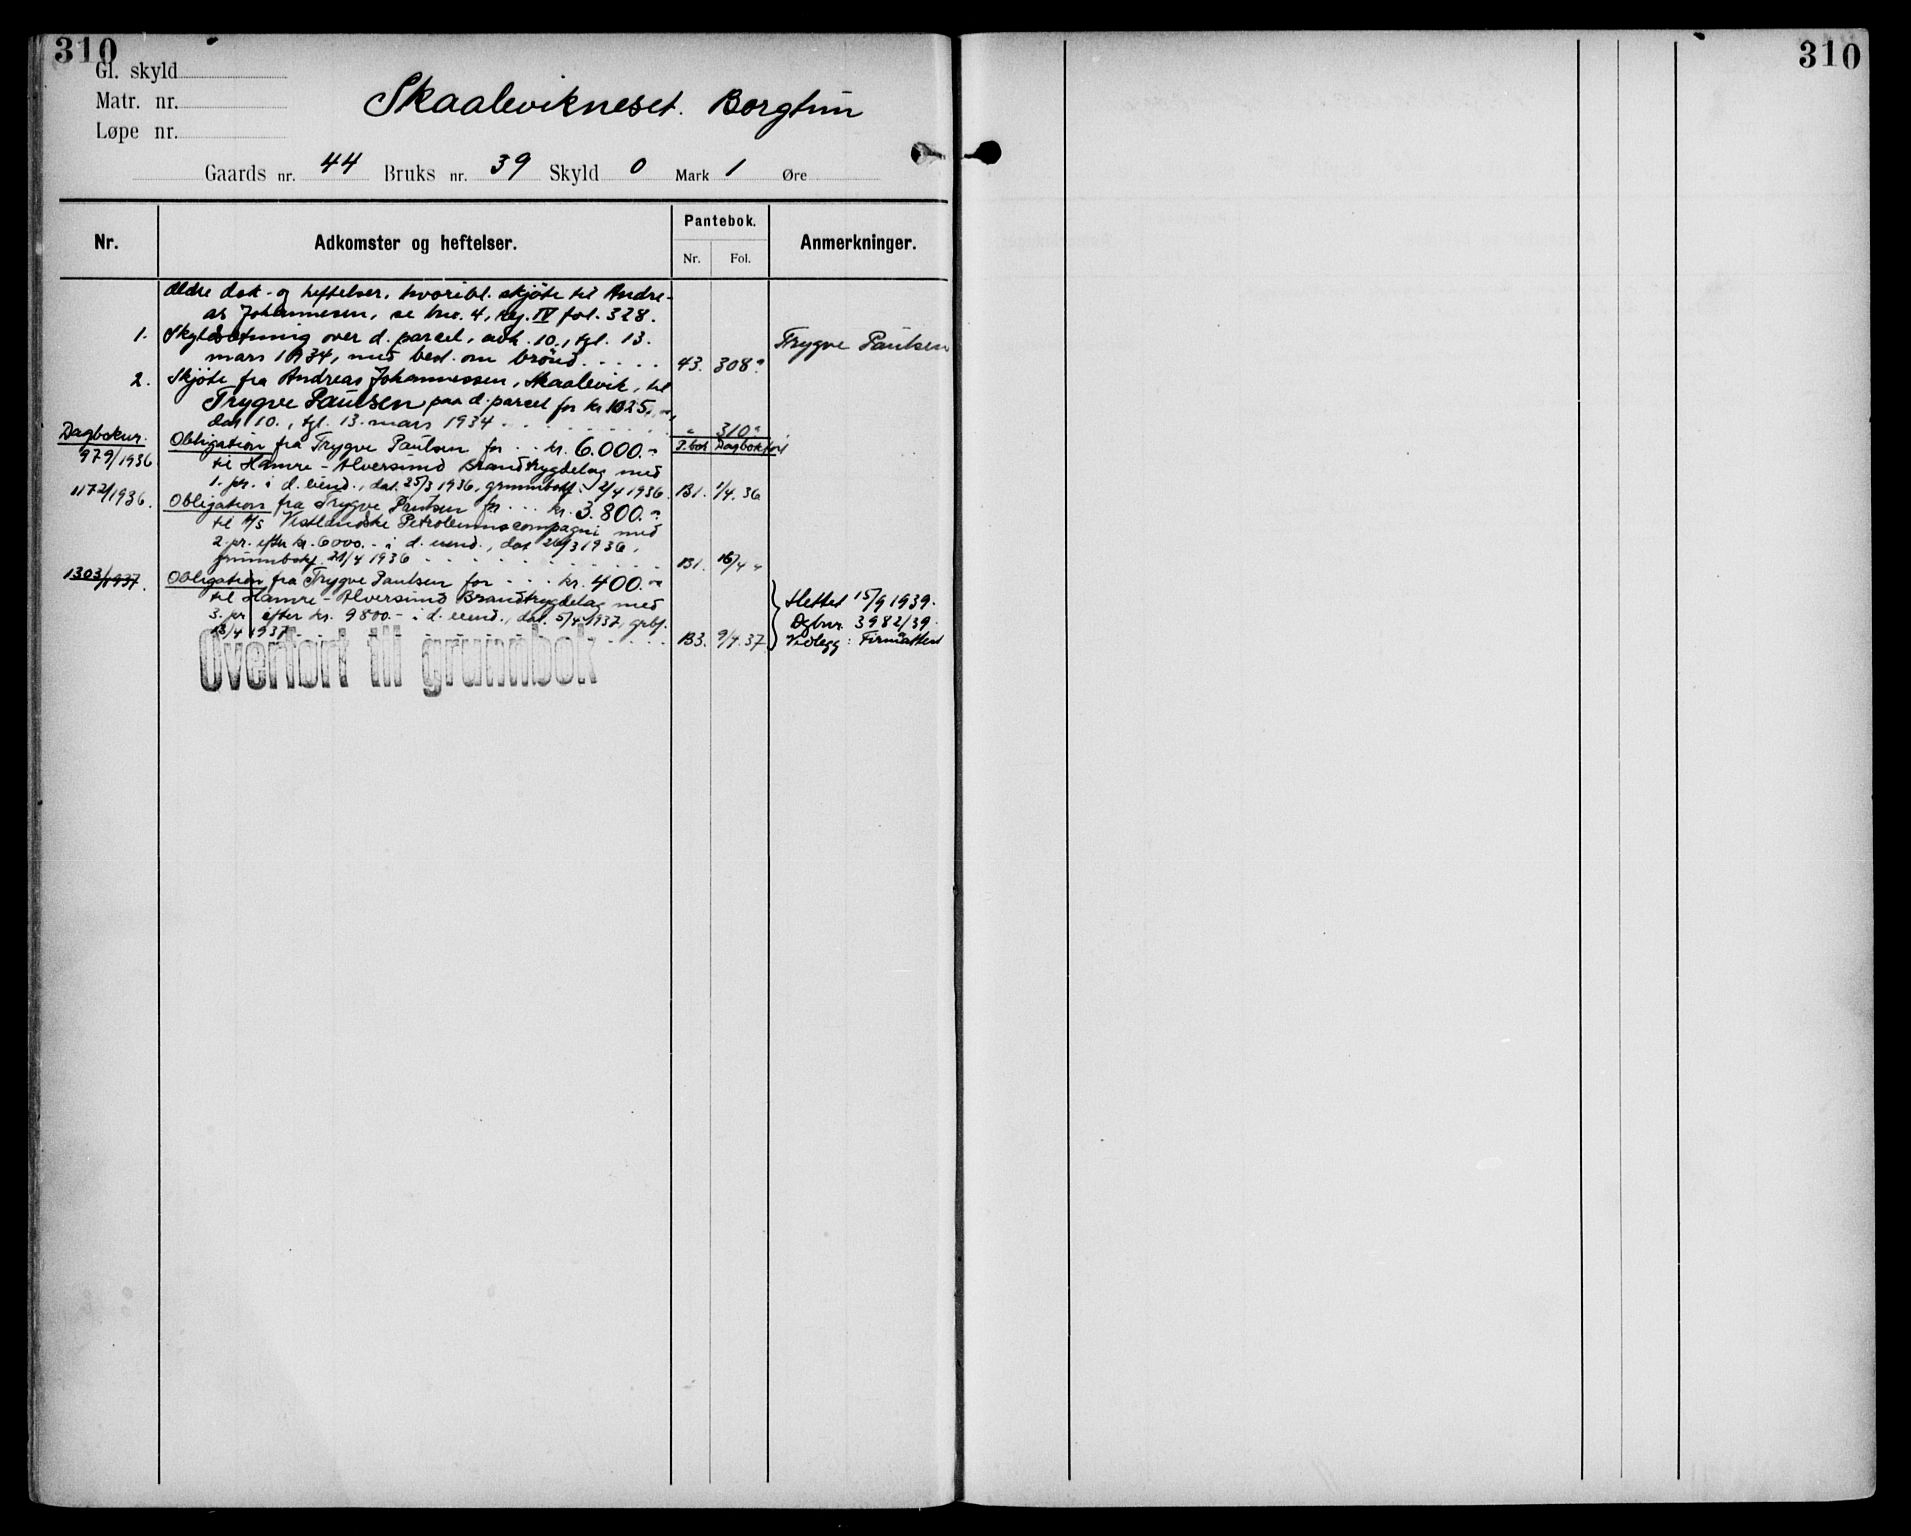 310
310
Gl. skyld
Matr. nr.
Løpe nr.
Skaalevikneset. Borgtun
Gaards nr. 44 Bruks nr. 39 Skyld 0 Mark 1 Øre
Nr.
Adkomster og heftelser.
Pantebok.
Nr. Fol.
Anmerkninger.
Ældre dok- og heftelser, hvoribl. skjøte til Andre-
as Johannesen, se bnr. 4, reg. IV fol. 328.
1. Skyldsetning over d. parcel, avh. 10., tgl. 13.
mars 1934, med best. om brönd. . . . 43. 308 a
Trygve Paulsen
2. Skjøte fra Andreas Johannessen, Skaalevik, til
Trygve Paulsen paa d. parcel for kr. 1025,
dat. 10., tgl. 13. mars 1934 . . . . " 310 a
Dagboknr. P.bok Dagbokført
979/1936 Obligation fra Trygve Paulsen for . . kr. 6.000.-
til Hamre-Alversund Brandtrygdelag med
1. pr. i d. eiend., dat. 25/3 1936, grunnbokf. 2/4 1936. B1. 1/4. 36
1172/1936. Obligation fra Trygve Paulsen for . . . kr. 3.800.-
til A/S Vestlandske Petroleumscompagni med
2. pr. efter kr. 6000.- i d. eiend., dat. 26/3 1936,
grunnbokf. 21/4 1936 . . . . B1. 16/4 "
1303/1937. Obligation fra Trygve Paulsen for . . . kr. 400.-
til Hamre-Alversund Brandtrygdelag med
3. pr. efter kr. 9800.- i d. eiend., dat. 5/4 1937, grbf.
13/4 1937 . . . . B3. 9/4. 37.
Slettet 15/9 1939.
Dgbnr. 3982/39.
Vedlegg: Firmattest
Overført til grunnbok